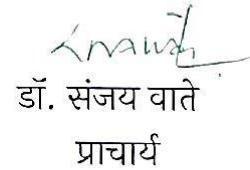 डॉ. संजय वाते
प्राचार्य